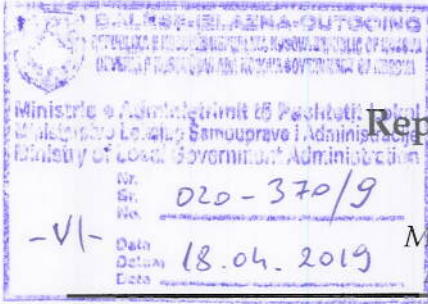 DALËSE-IZLAZNA-OUTGOING
Ministria e Administrimit të Pushtetit Lokal
Ministarstvo Lokalne Samouprave i Administracije
Ministry of Local Government Administration
Rep
Nr.
Br.
No.
020-370/9
-VI-
Data
Datum
Date
18.04.2019
M